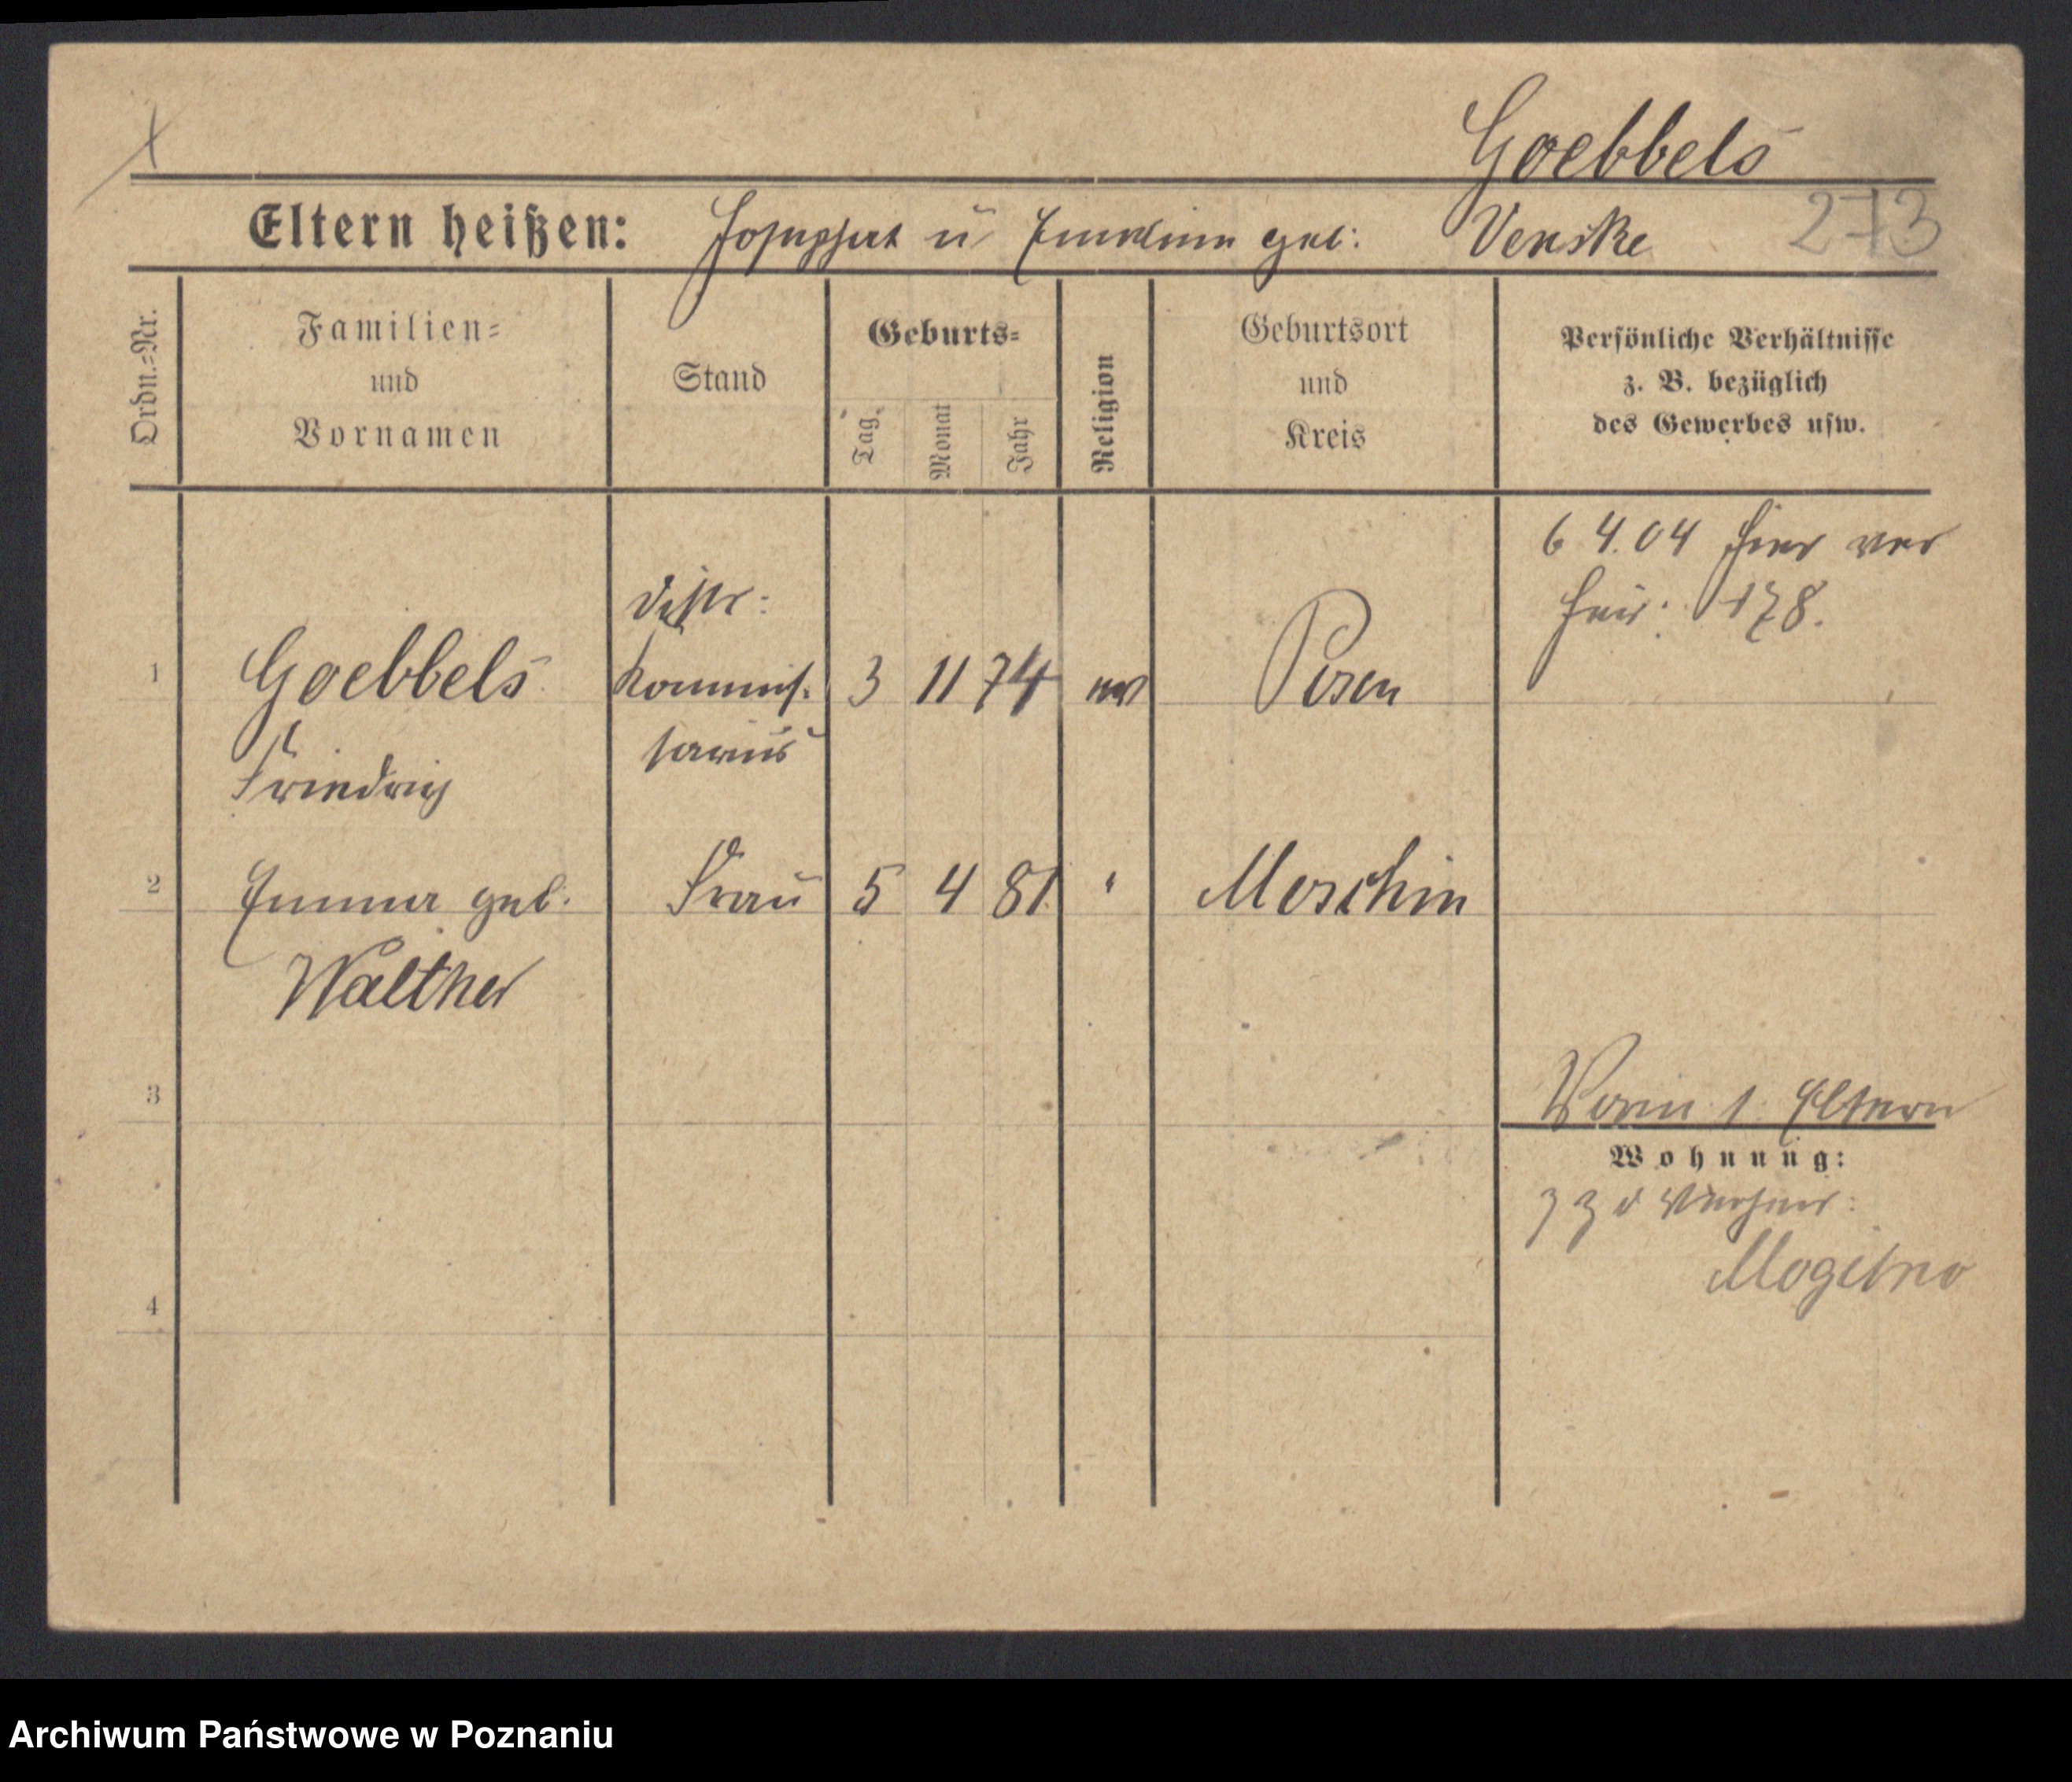 Goebbels
Eltern heißen: u geb: Venske
273
Ordn.=Nr.
Familien=
und
Vornamen
Stand
Geburts=
Tag
Monat
Jahr
Religion
Geburtsort
und
Kreis
Persönliche Verhältnisse
z. B. bezüglich
des Gewerbes usw.
6 4.04 hier ver
heir: 178.
1 Goebbels
Friedrich
Distr:
Kommis=
sarius
3 11 74 ev Posen
2 Emma geb. Frau 5 4 81 " Moschin
Walther
3
1 Eltern
Wohnung:
Mogilno
4
Archiwum Państwowe w Poznaniu